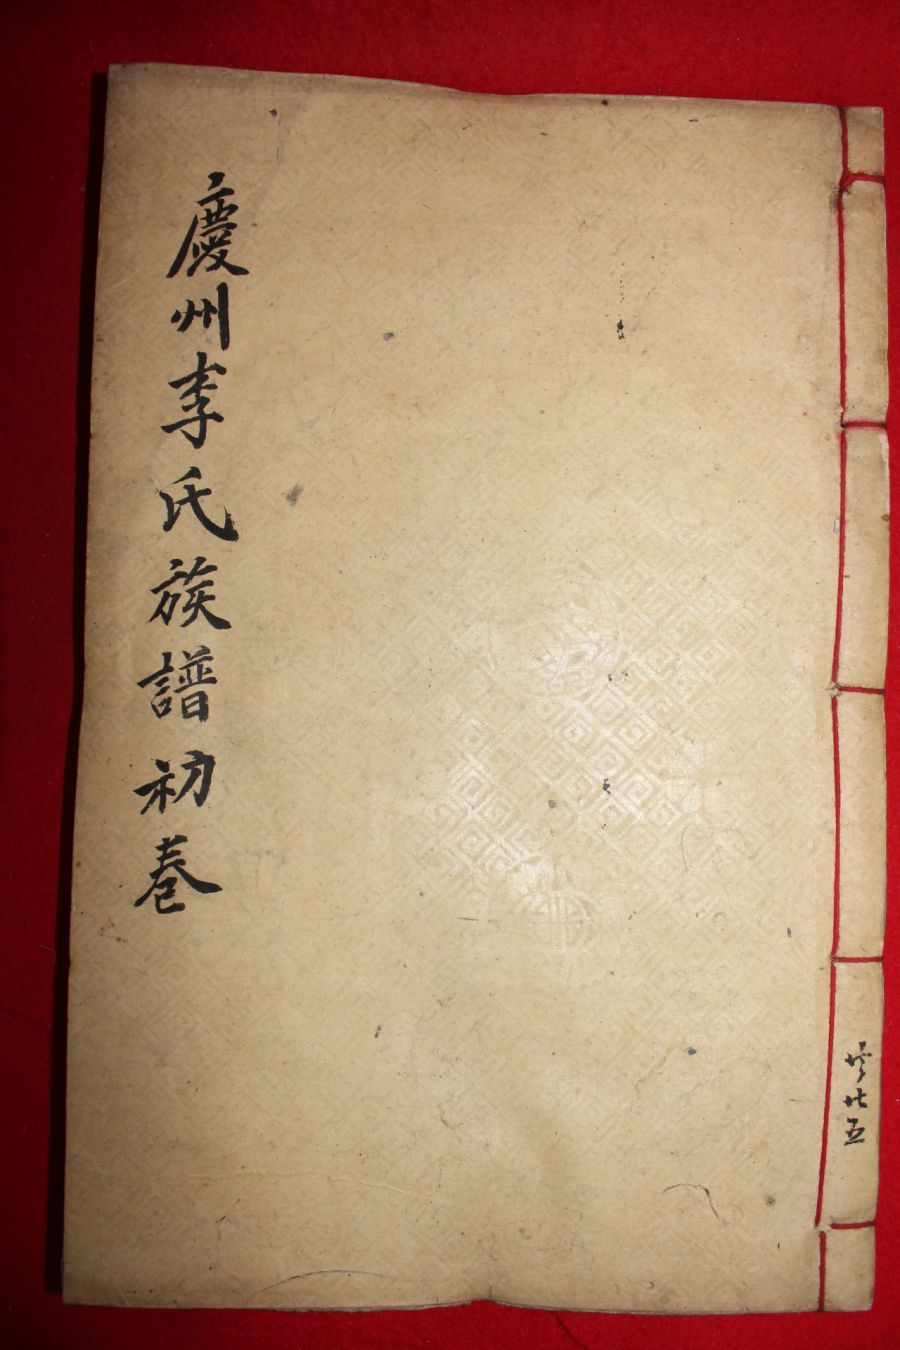 慶州李氏族譜初卷
共廿五